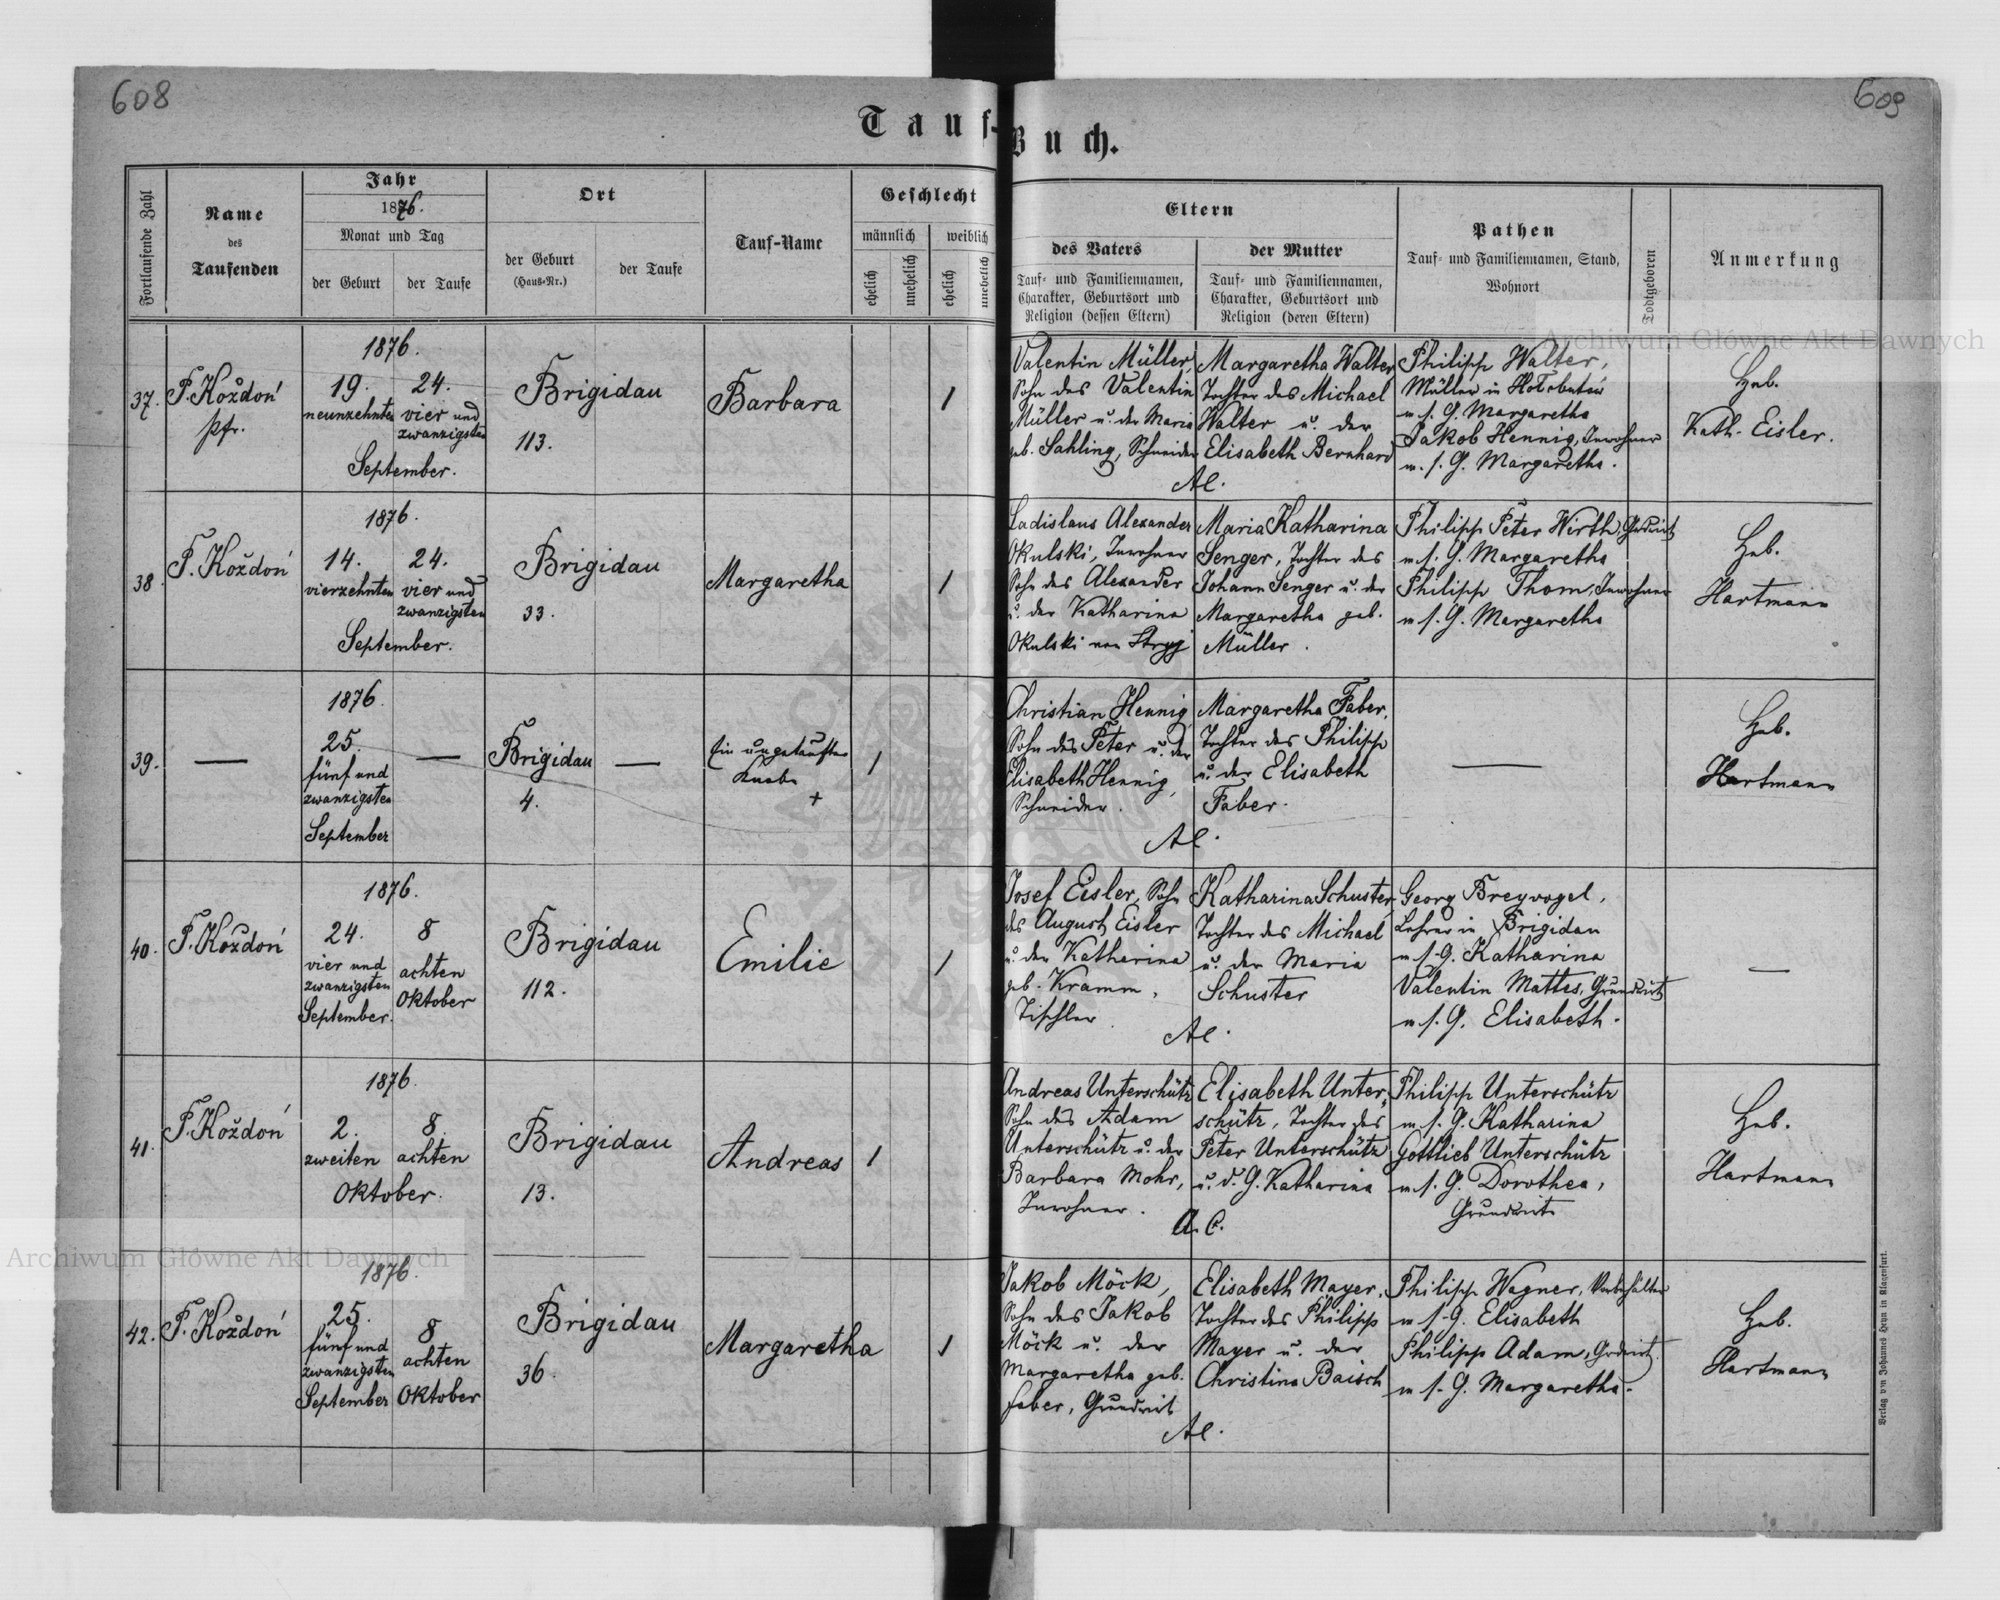 608
609
Tauf-Buch.
Fortlaufende Zahl
Name
des
Taufenden
Jahr
1876.
Monat und Tag
der Geburt
der Taufe
Ort
der Geburt
(Haus-Nr.)
der Taufe
Tauf-Name
Geschlecht
männlich
weiblich
ehelich
unehelich
ehelich
unehelich
Eltern
des Vaters
Tauf- und Familiennamen,
Charakter, Geburtsort und
Religion (dessen Eltern)
der Mutter
Tauf- und Familiennamen,
Charakter, Geburtsort und
Religion (deren Eltern)
Pathen
Tauf- und Familiennamen, Stand,
Wohnort
Todtgeboren
Anmerkung
Archiwum Główne Akt Dawnych
37.
P. Koždoń
Pfr.
1876.
19.
neunzehnten
24.
vier und
zwanzigsten
September.
Brigidau
113.
Barbara
1
Valentin Müller,
Sohn des Valentin
Müller u. der Maria
geb. Sahling, Schneider
Margaretha Walter
Tochter des Michael
Walter u. der
Elisabeth Bernhard
AC.
Philipp Walter,
Müller in
m. s. G. Margaretha
Jakob Hennig, Inwohner
m. s. G. Margaretha.
Heb.
Kath. Eisler.
38.
P. Koždoń
1876.
14.
vierzehnten
24.
vier und
zwanzigsten
September.
Brigidau
33.
Margaretha
1
Ladislaus Alexander
Okulski, Inwohner
Sohn des Alexander
u. der Katharina
Okulski von Stryj
Maria Katharina
Senger, Tochter des
Johann Senger u. der
Margaretha geb.
Müller.
Philipp Peter Wirth, Grdwirt
m. s. G. Margaretha
Philipp Thom, Inwohner
m. s. G. Margaretha
Heb.
Hartmann
39.
—
1876.
25.
fünf und
zwanzigsten
September
—
Brigidau
4.
—
Ein ungetaufter
Knabe
+
1
Christian Hennig,
Sohn des Peter u. der
Elisabeth Hennig,
Schneider.
Margaretha Faber,
Tochter des Philipp
u. der Elisabeth
Faber.
AC.
—
Heb.
Hartmann
40.
P. Koždoń
1876.
24.
vier und
zwanzigsten
September.
8
achten
Oktober
Brigidau
112.
Emilie
1
Josef Eisler, Sohn
des August Eisler
u. der Katharina
geb. Kramm,
Tischler
Katharina Schuster,
Tochter des Michael
u. der Maria
Schuster
AC.
Georg Breyvogel,
Lehrer in Brigidau
m. s. G. Katharina
Valentin Mattes, Grundwirt
m. s. G. Elisabeth.
—
41.
P. Koždoń
1876.
2.
zweiten
8.
achten
Oktober.
Brigidau
13.
Andreas
1
Andreas Unterschütz
Sohn des Adam
Unterschütz u. der
Barbara Mohr,
Inwohner.
Elisabeth Unter-
schütz, Tochter des
Peter Unterschütz
u. d. G. Katharina
A. C.
Philipp Unterschütz
m. s. G. Katharina
Gottlieb Unterschütz
m. s. G. Dorothea,
Grundwirte
Heb.
Hartmann
Archiwum Główne Akt Dawnych
42.
P. Koždoń
1876.
25.
fünf und
zwanzigsten
September
8
achten
Oktober
Brigidau
36.
Margaretha
1
Jakob Möck,
Sohn des Jakob
Möck u. der
Margaretha geb.
Faber, Grundwirt
Elisabeth Mayer,
Tochter des Philipp
Mayer u. der
Christina Baisch
AC.
Philipp Wagner, Vorbehälter
m. s. G. Elisabeth
Philipp Adam, Grdwirt.
m. s. G. Margaretha.
Heb.
Hartmann
Verlag von Johannes Heyn in Klagenfurt.